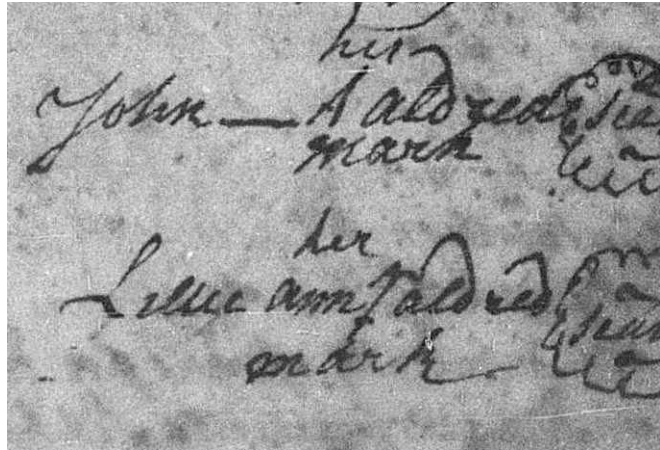 his
John — A aldred seal
mark
her
ann aldred seal
mark